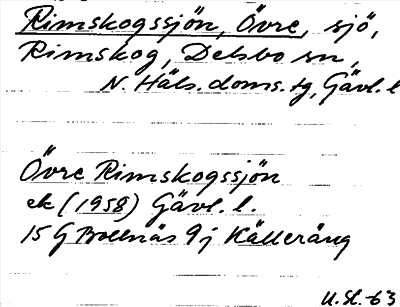 Rimskogssjön, Övre, sjö,
Rimskog, Delsbo sn,
N. Häls. doms. tg, Gävl. l
Övre Rimskogssjön
ek (1958) Gävl. l.
15 G Bollnäs 9 j Källeräng
U. St. -63